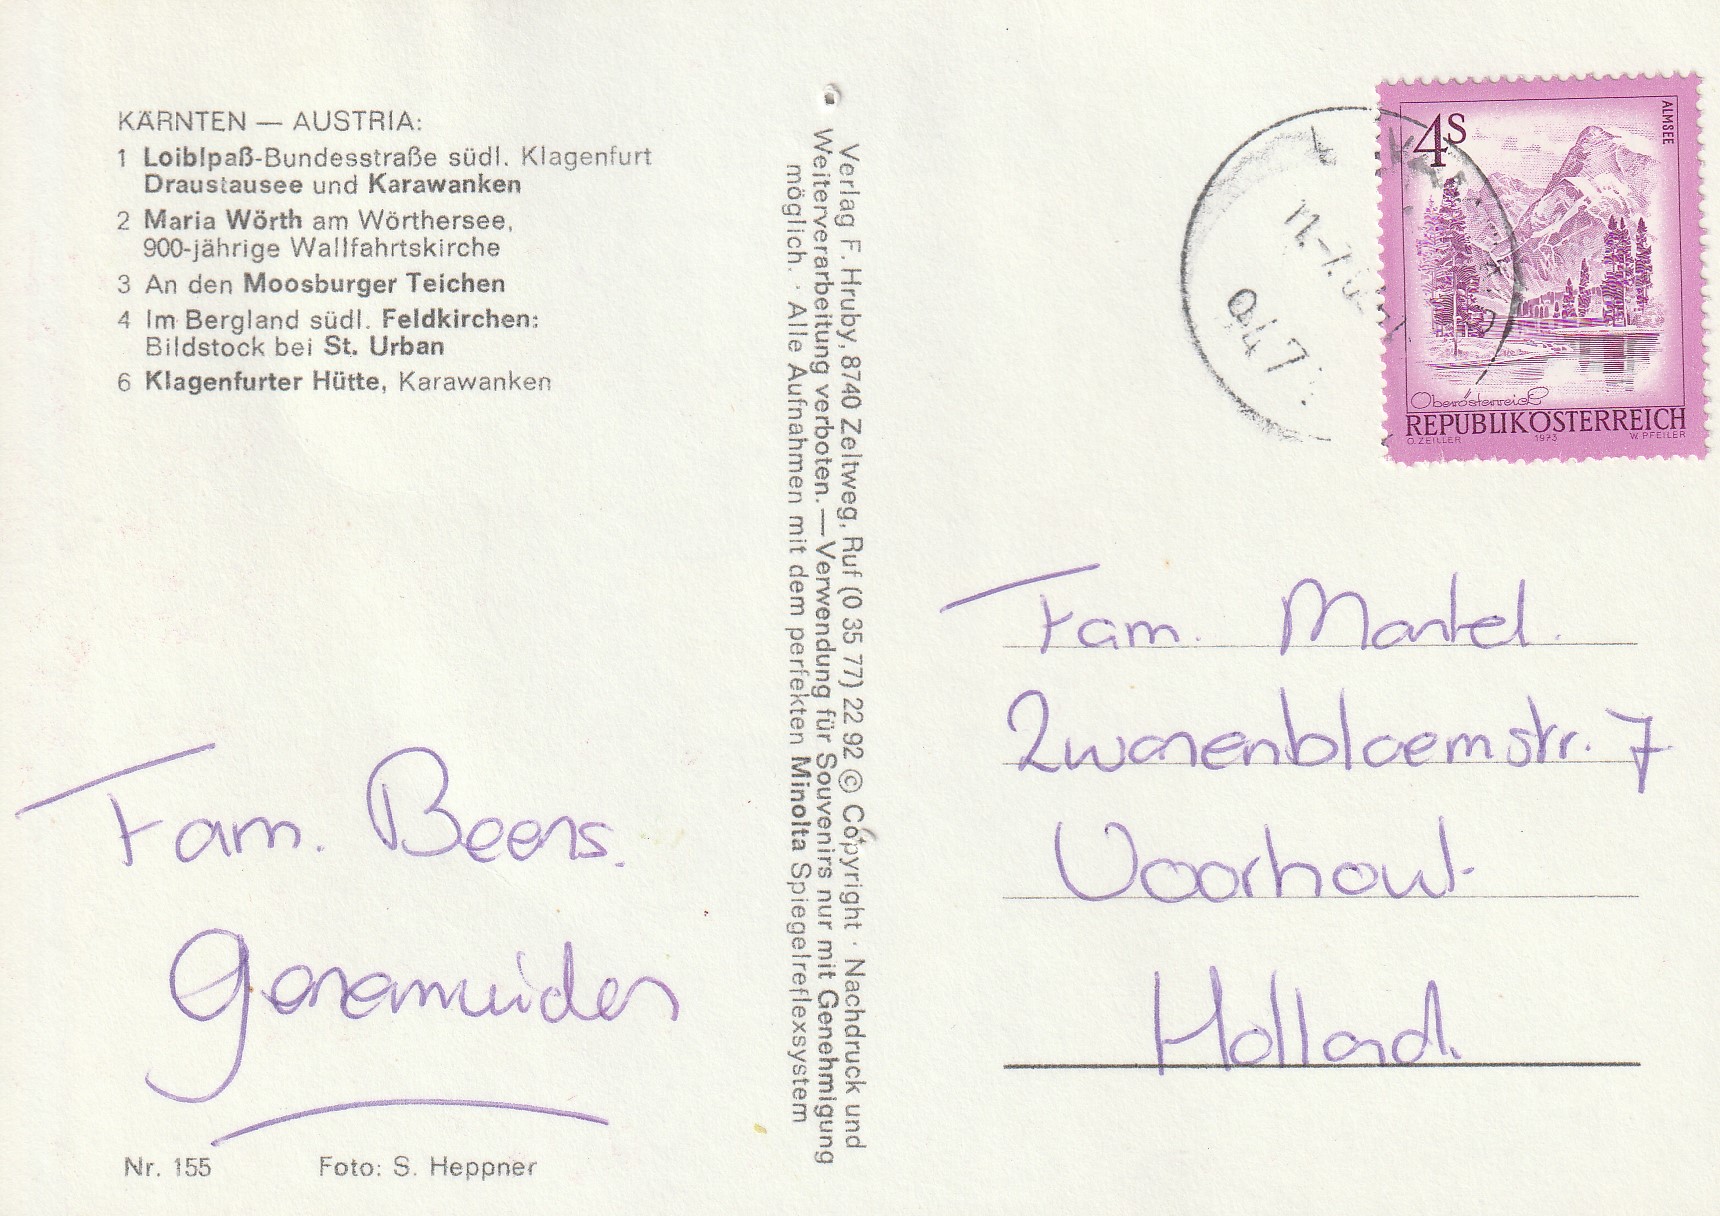 KÄRNTEN — AUSTRIA:
1 Loiblpaß-Bundesstraße südl. Klagenfurt
Draustausee und Karawanken
2 Maria Wörth am Wörthersee,
900-jährige Wallfahrtskirche
3 An den Moosburger Teichen
4 Im Bergland südl. Feldkirchen:
Bildstock bei St. Urban
6 Klagenfurter Hütte, Karawanken
Fam. Beens.
Genemuiden
Nr. 155 Foto: S. Heppner
Verlag F. Hruby, 8740 Zeltweg, Ruf (0 35 77) 22 92 © Copyright · Nachdruck und
Weiterverarbeitung verboten. — Verwendung für Souvenirs nur mit Genehmigung
möglich. · Alle Aufnahmen mit dem perfekten Minolta Spiegelreflexsystem
4S
ALMSEE
Oberösterreich
REPUBLIK ÖSTERREICH
O. ZEILLER 1973 W. PFEILER
Fam. Mantel.
Zwanenbloemstr. 7
Voorhout
Holland.